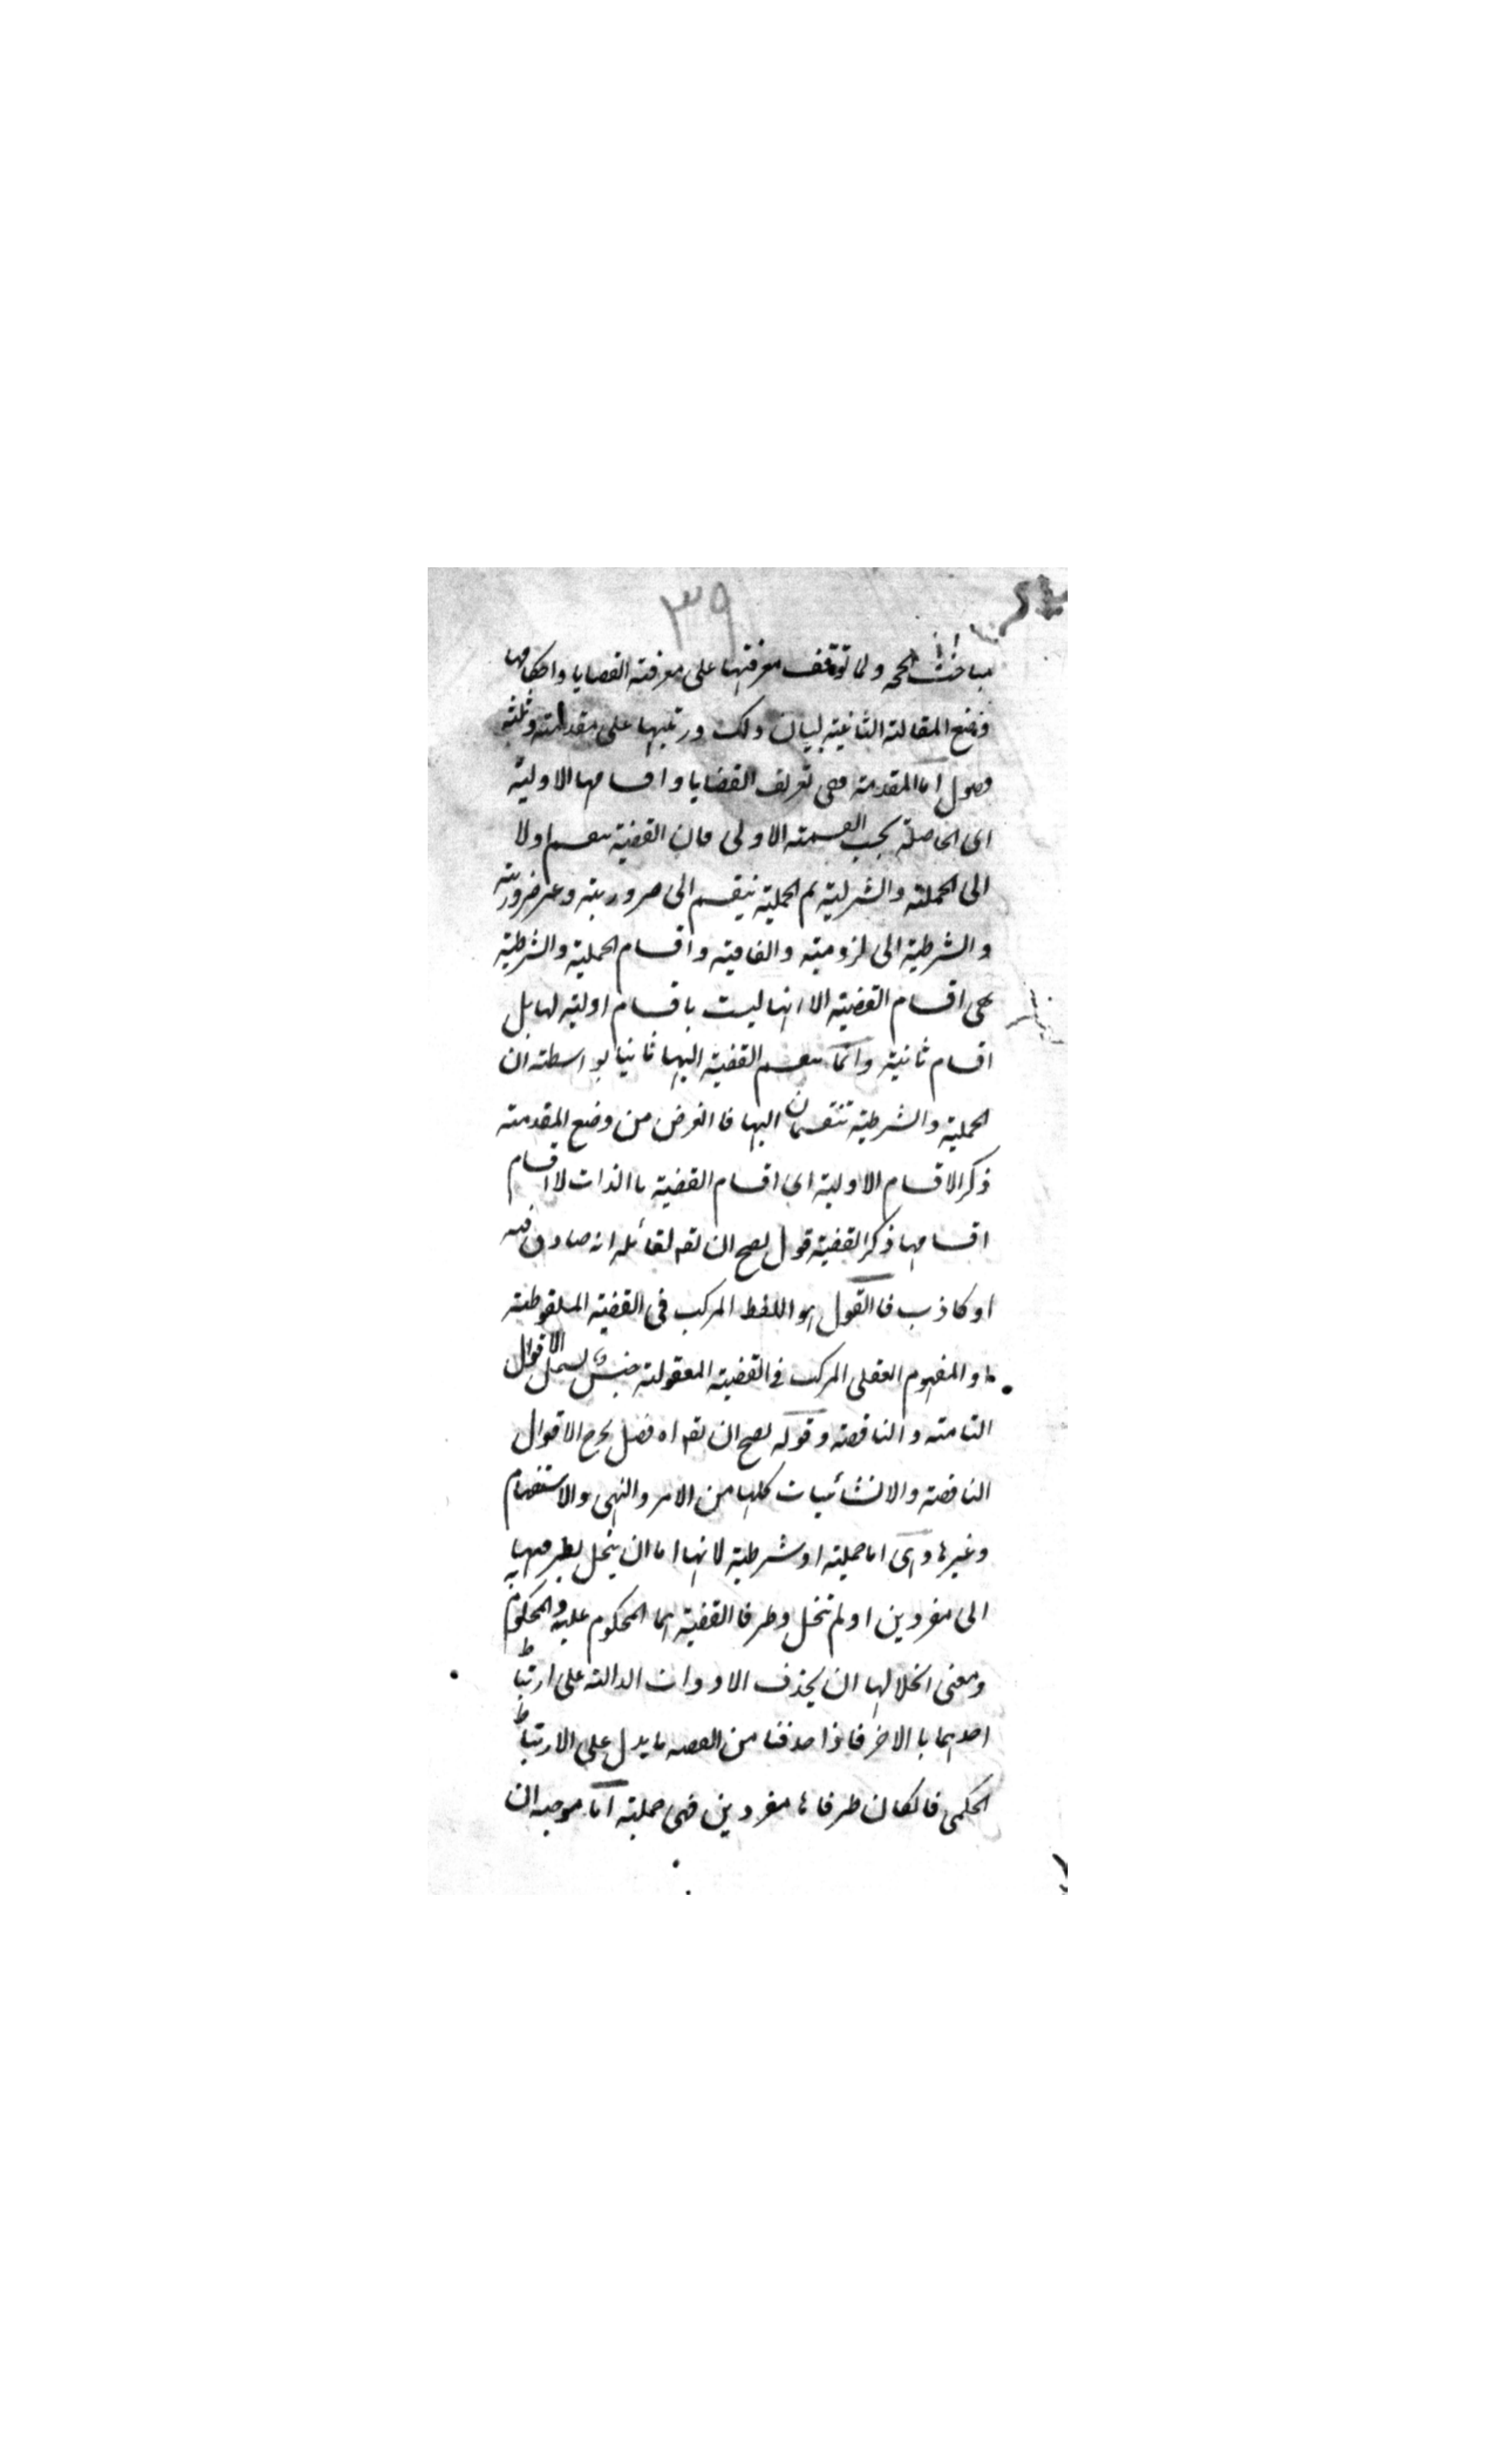 ٣٩
مباحث الحجة ولما توقف معرفتها على معرفة القضايا واحكامها
وضع المقالة الثانية لبيان ذلك ورتبها على مقدمة وثلثة
فصول اما المقدمة ففي تعريف القضايا واقسامها الاولية
اى الحاصلة بحسب القسمة الاولى فان القضية تنقسم اولا
الى الحملية والشرطية ثم الحملية ينقسم الى ضرورية وغير ضرورية
والشرطية الى لزومية واتفاقية واقسام الحملية والشرطية
هى اقسام القضية الا انها ليست باقسام اولية لها بل
اقسام ثانية وانما تنقسم القضية اليها ثانيا بواسطة ان
الحملية والشرطية تنقسمان اليها فالغرض من وضع المقدمة
ذكر الاقسام الاولية اى اقسام القضية بالذات لا اقسام
اقسامها ذكر القضية قول يصح ان يقه لقائله انه صادق فيه
او كاذب فالقول هو اللفظ المركب فى القضية الملفوظة
او المفهوم العقلى المركب فى القضية المعقولة جنس يشمل الاقوال
التامة والناقصة وقوله يصح ان يقه اه فصل يخرج الاقوال
الناقصة والانشائيات كلها من الامر والنهى والاستفهام
وغيرها وهى اما حملية او شرطية لانها اما ان ينحل بطرفيها
الى مفردين او لم تنحل وطرفا القضية هما المحكوم عليه والمحكوم به
ومعنى انحلالها ان يحذف الادوات الدالة على ارتباط
احدهما بالاخر فاذا حذفنا من القضية ما يدل على الارتباط
الحكمى فان كان طرفاها مفردين فهى حملية اما موجبة ان